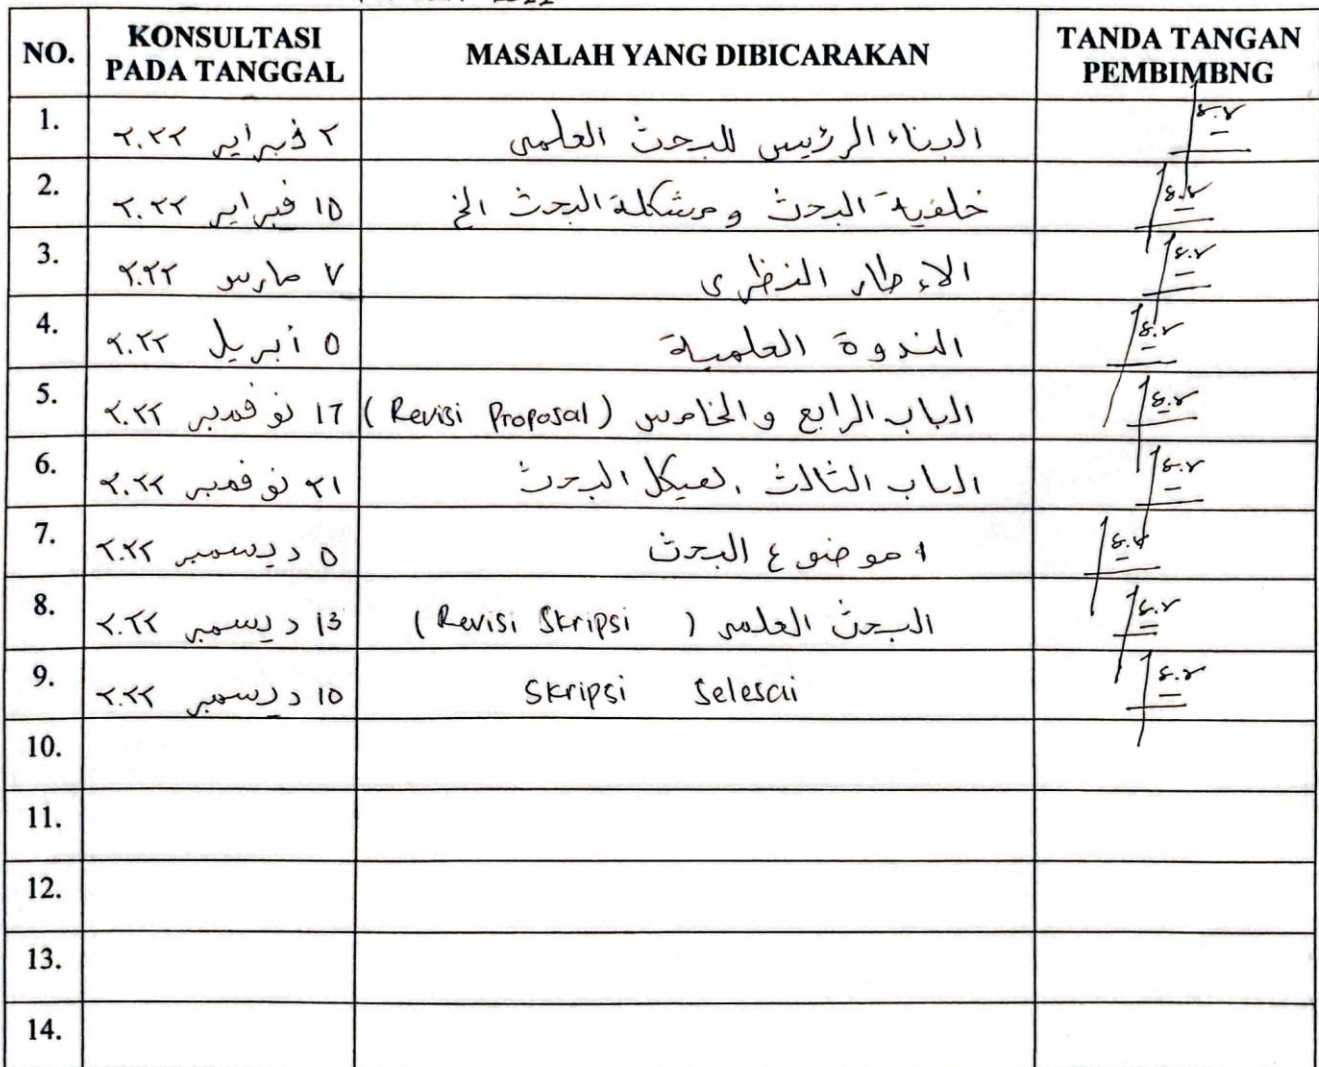 NO. KONSULTASI PADA TANGGAL MASALAH YANG DIBICARAKAN TANDA TANGAN PEMBIMBNG
1. ٢ فبراير ٢٠٢٢ البناء الرئيس للبحث العلمى
2. ١٥ فبراير ٢٠٢٢ خلفية البحث ومشكلة البحث الخ
3. ٧ مارس ٢٠٢٢ الإطار النظرى
4. ٥ أبريل ٢٠٢٢ الندوة العلمية
5. ١٦ نوفمبر ٢٠٢٢ الباب الرابع والخامس (Revisi Proposal)
6. ٢١ نوفمبر ٢٠٢٢ الباب الثالث، هيكل البحث
7. ٥ ديسمبر ٢٠٢٢ موضوع البحث
8. 13 ديسمبر ٢٠٢٢ البحث العلمى (Revisi Skripsi)
9. ١٥ ديسمبر ٢٠٢٢ Skripsi Selesai
10.
11.
12.
13.
14.